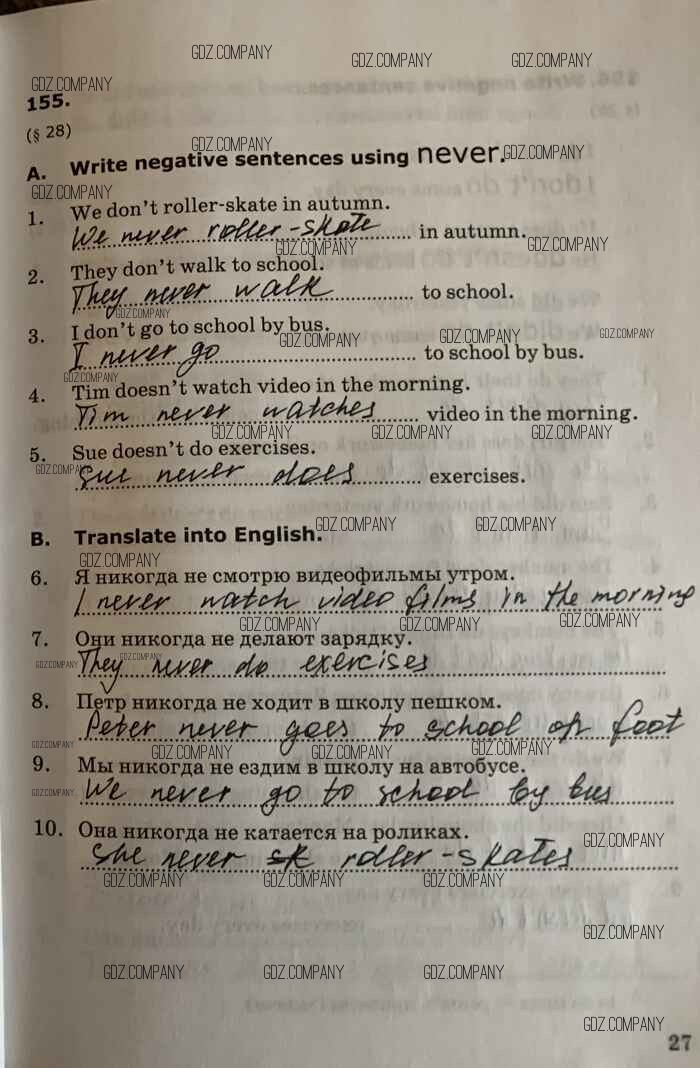 GDZ.COMPANY GDZ.COMPANY GDZ.COMPANY
GDZ.COMPANY
155.
(§ 28)
GDZ.COMPANY
A. Write negative sentences using never. GDZ.COMPANY
GDZ.COMPANY
1. We don't roller-skate in autumn.
We never roller-skate in autumn.
GDZ.COMPANY GDZ.COMPANY
2. They don't walk to school.
They never walk to school.
GDZ.COMPANY
3. I don't go to school by bus.
GDZ.COMPANY GDZ.COMPANY GDZ.COMPANY
I never go to school by bus.
GDZ.COMPANY
4. Tim doesn't watch video in the morning.
Tim never watches video in the morning.
GDZ.COMPANY GDZ.COMPANY GDZ.COMPANY
5. Sue doesn't do exercises.
GDZ.COMPANY
Sue never does exercises.
GDZ.COMPANY GDZ.COMPANY
B. Translate into English.
GDZ.COMPANY
6. Я никогда не смотрю видеофильмы утром.
I never watch video films in the morning
GDZ.COMPANY GDZ.COMPANY GDZ.COMPANY
7. Они никогда не делают зарядку.
GDZ.COMPANY GDZ.COMPANY
They never do exercises
8. Петр никогда не ходит в школу пешком.
Peter never goes to school on foot
GDZ.COMPANY GDZ.COMPANY GDZ.COMPANY GDZ.COMPANY
9. Мы никогда не ездим в школу на автобусе.
GDZ.COMPANY
We never go to school by bus
10. Она никогда не катается на роликах.
GDZ.COMPANY
She never sk roller-skates
GDZ.COMPANY GDZ.COMPANY GDZ.COMPANY
GDZ.COMPANY
GDZ.COMPANY GDZ.COMPANY GDZ.COMPANY
GDZ.COMPANY
27